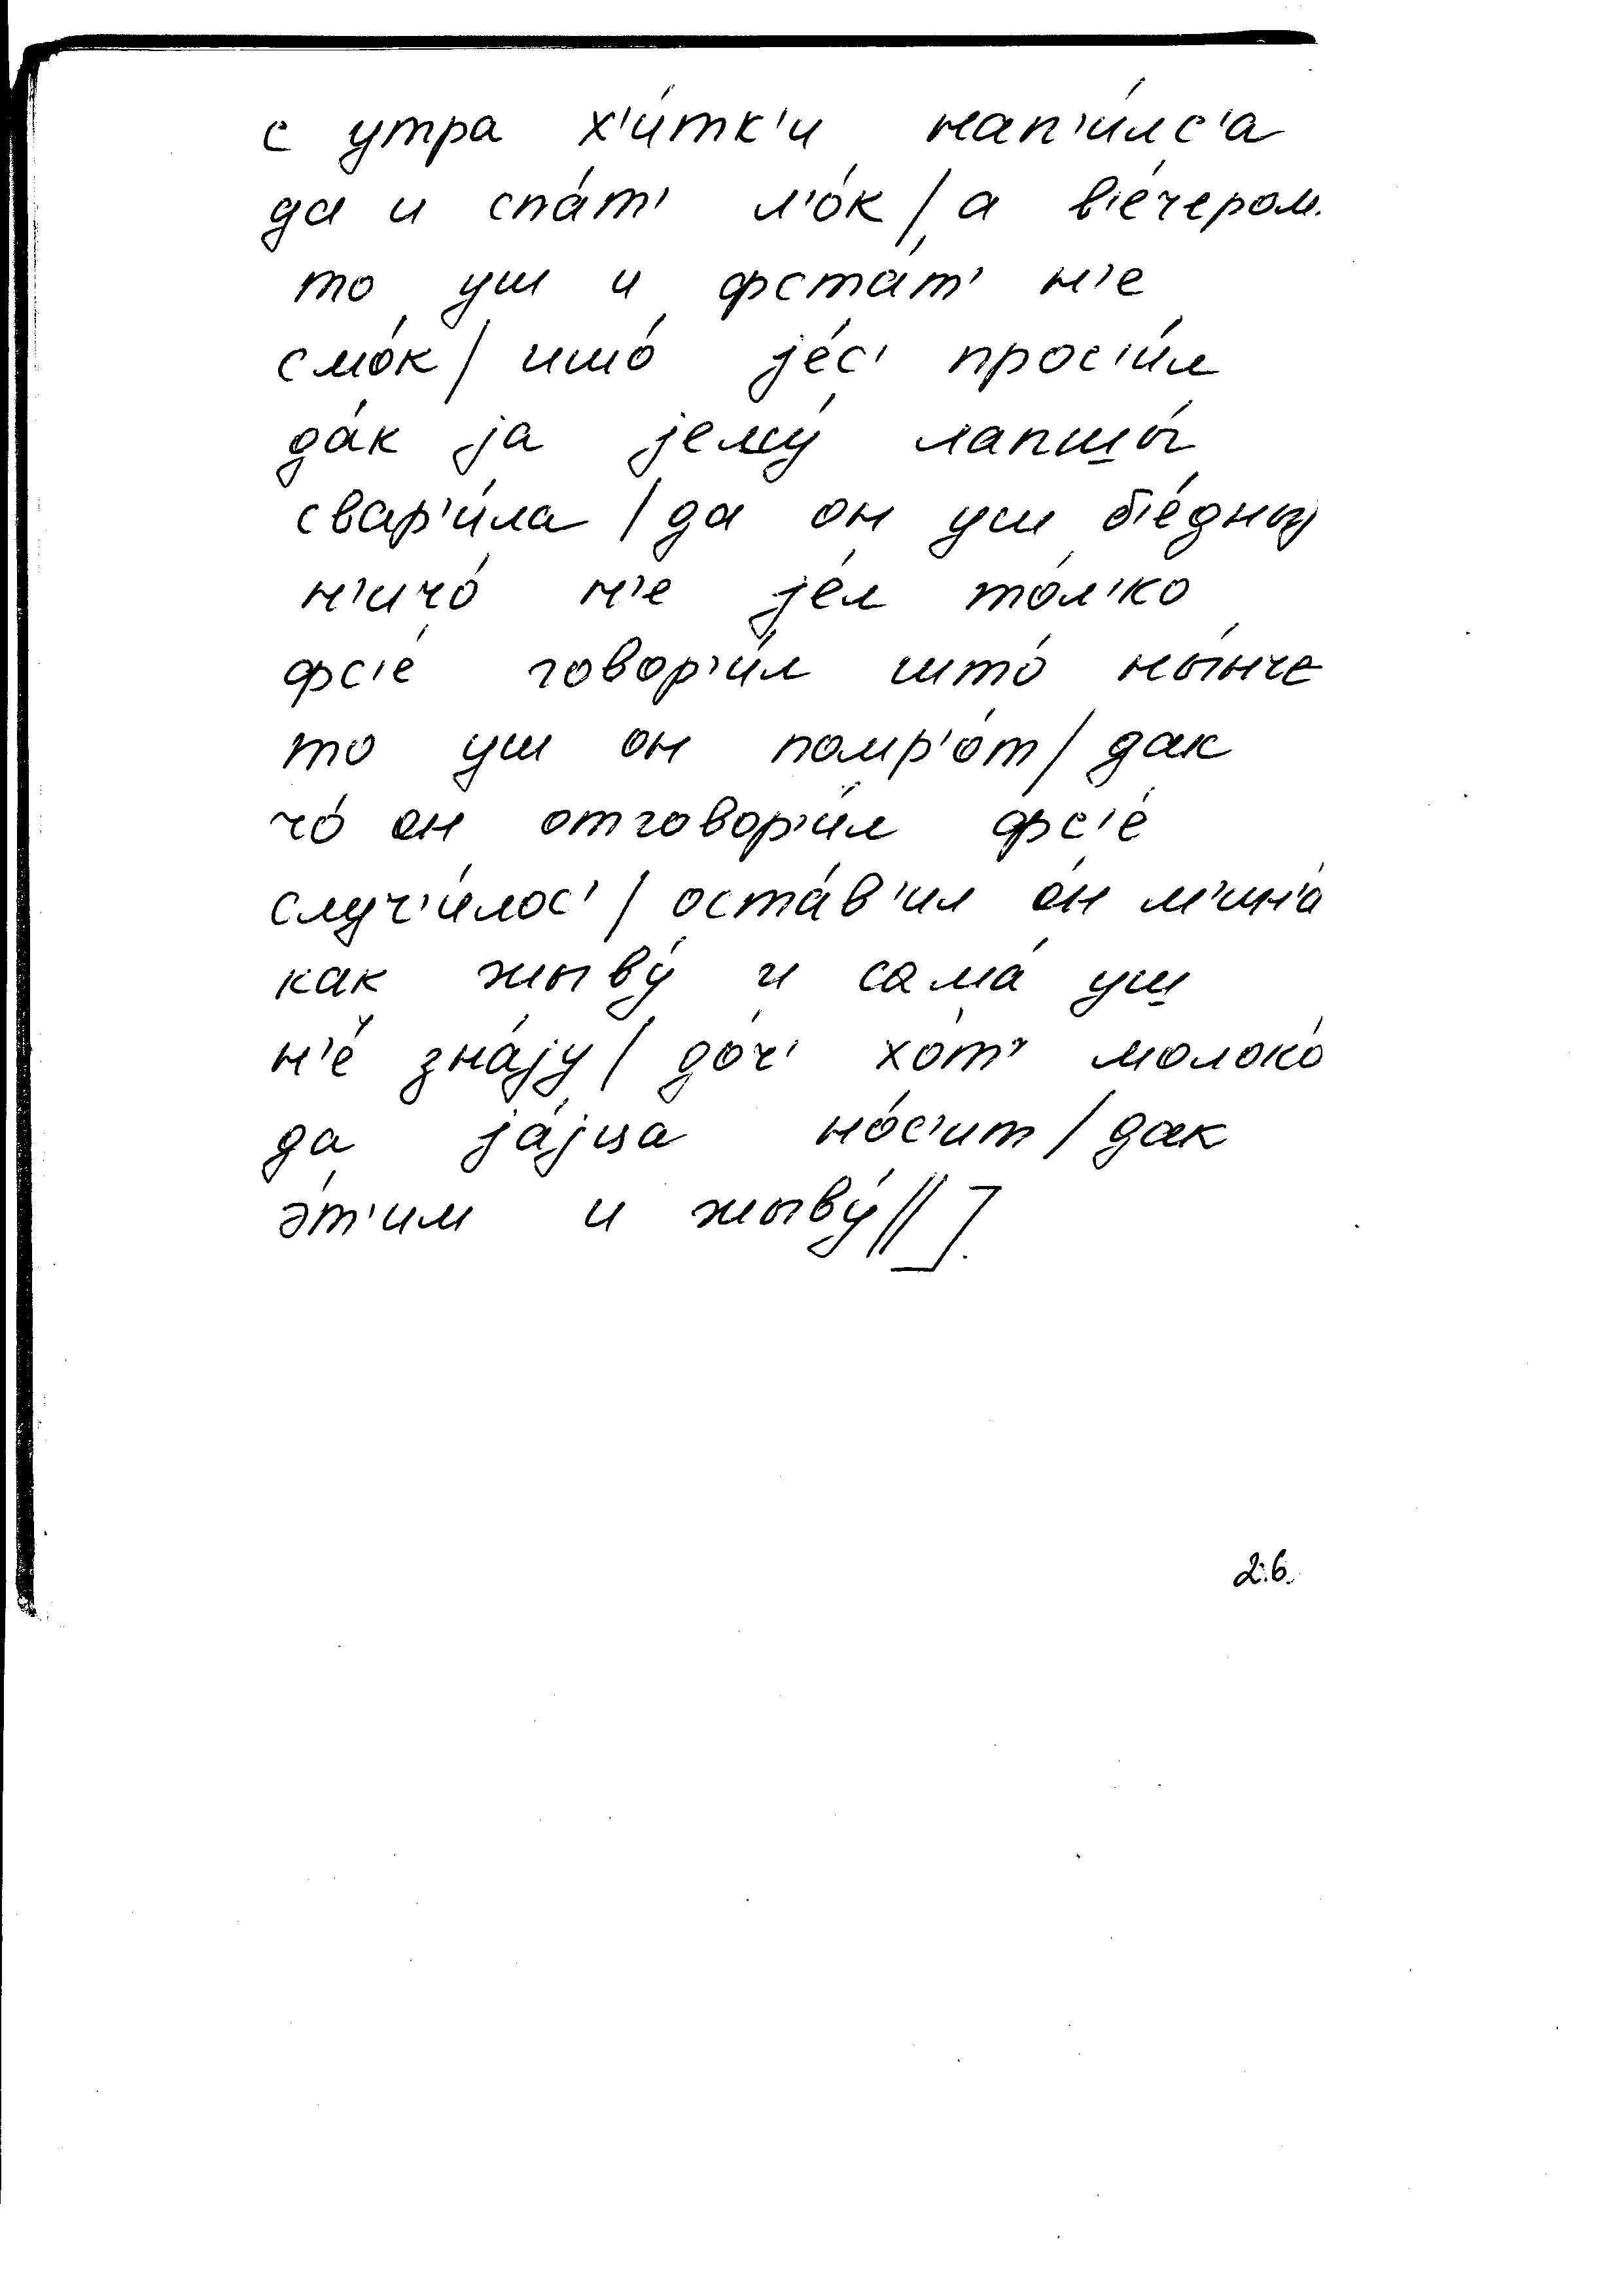 с утра х'и́тк'и нап'и́лс'а
да и спа́т' л'о́к / а в'е́чером
то уш и фста́т' н'е
смо́к / ишо́ је́с' прос'и́л
да́к ја јему́ лапшы́
свар'и́ла / да он уш б'е́дныј
н'ичо́ н'е је́л то́л'ко
фс'е́ говор'и́л што́ ны́нче
то уш он помр'о́т / дак
чо́ он отговор'и́л фс'е́
случ'и́лос' / оста́в'ил о́н м'ин'а́
как жыву́ и сама́ уш
н'е́ зна́ју / до́ч' хо́т' молоко́
да ја́јца но́с'ит / дак
э́т'им и жыву́ // ].
26.